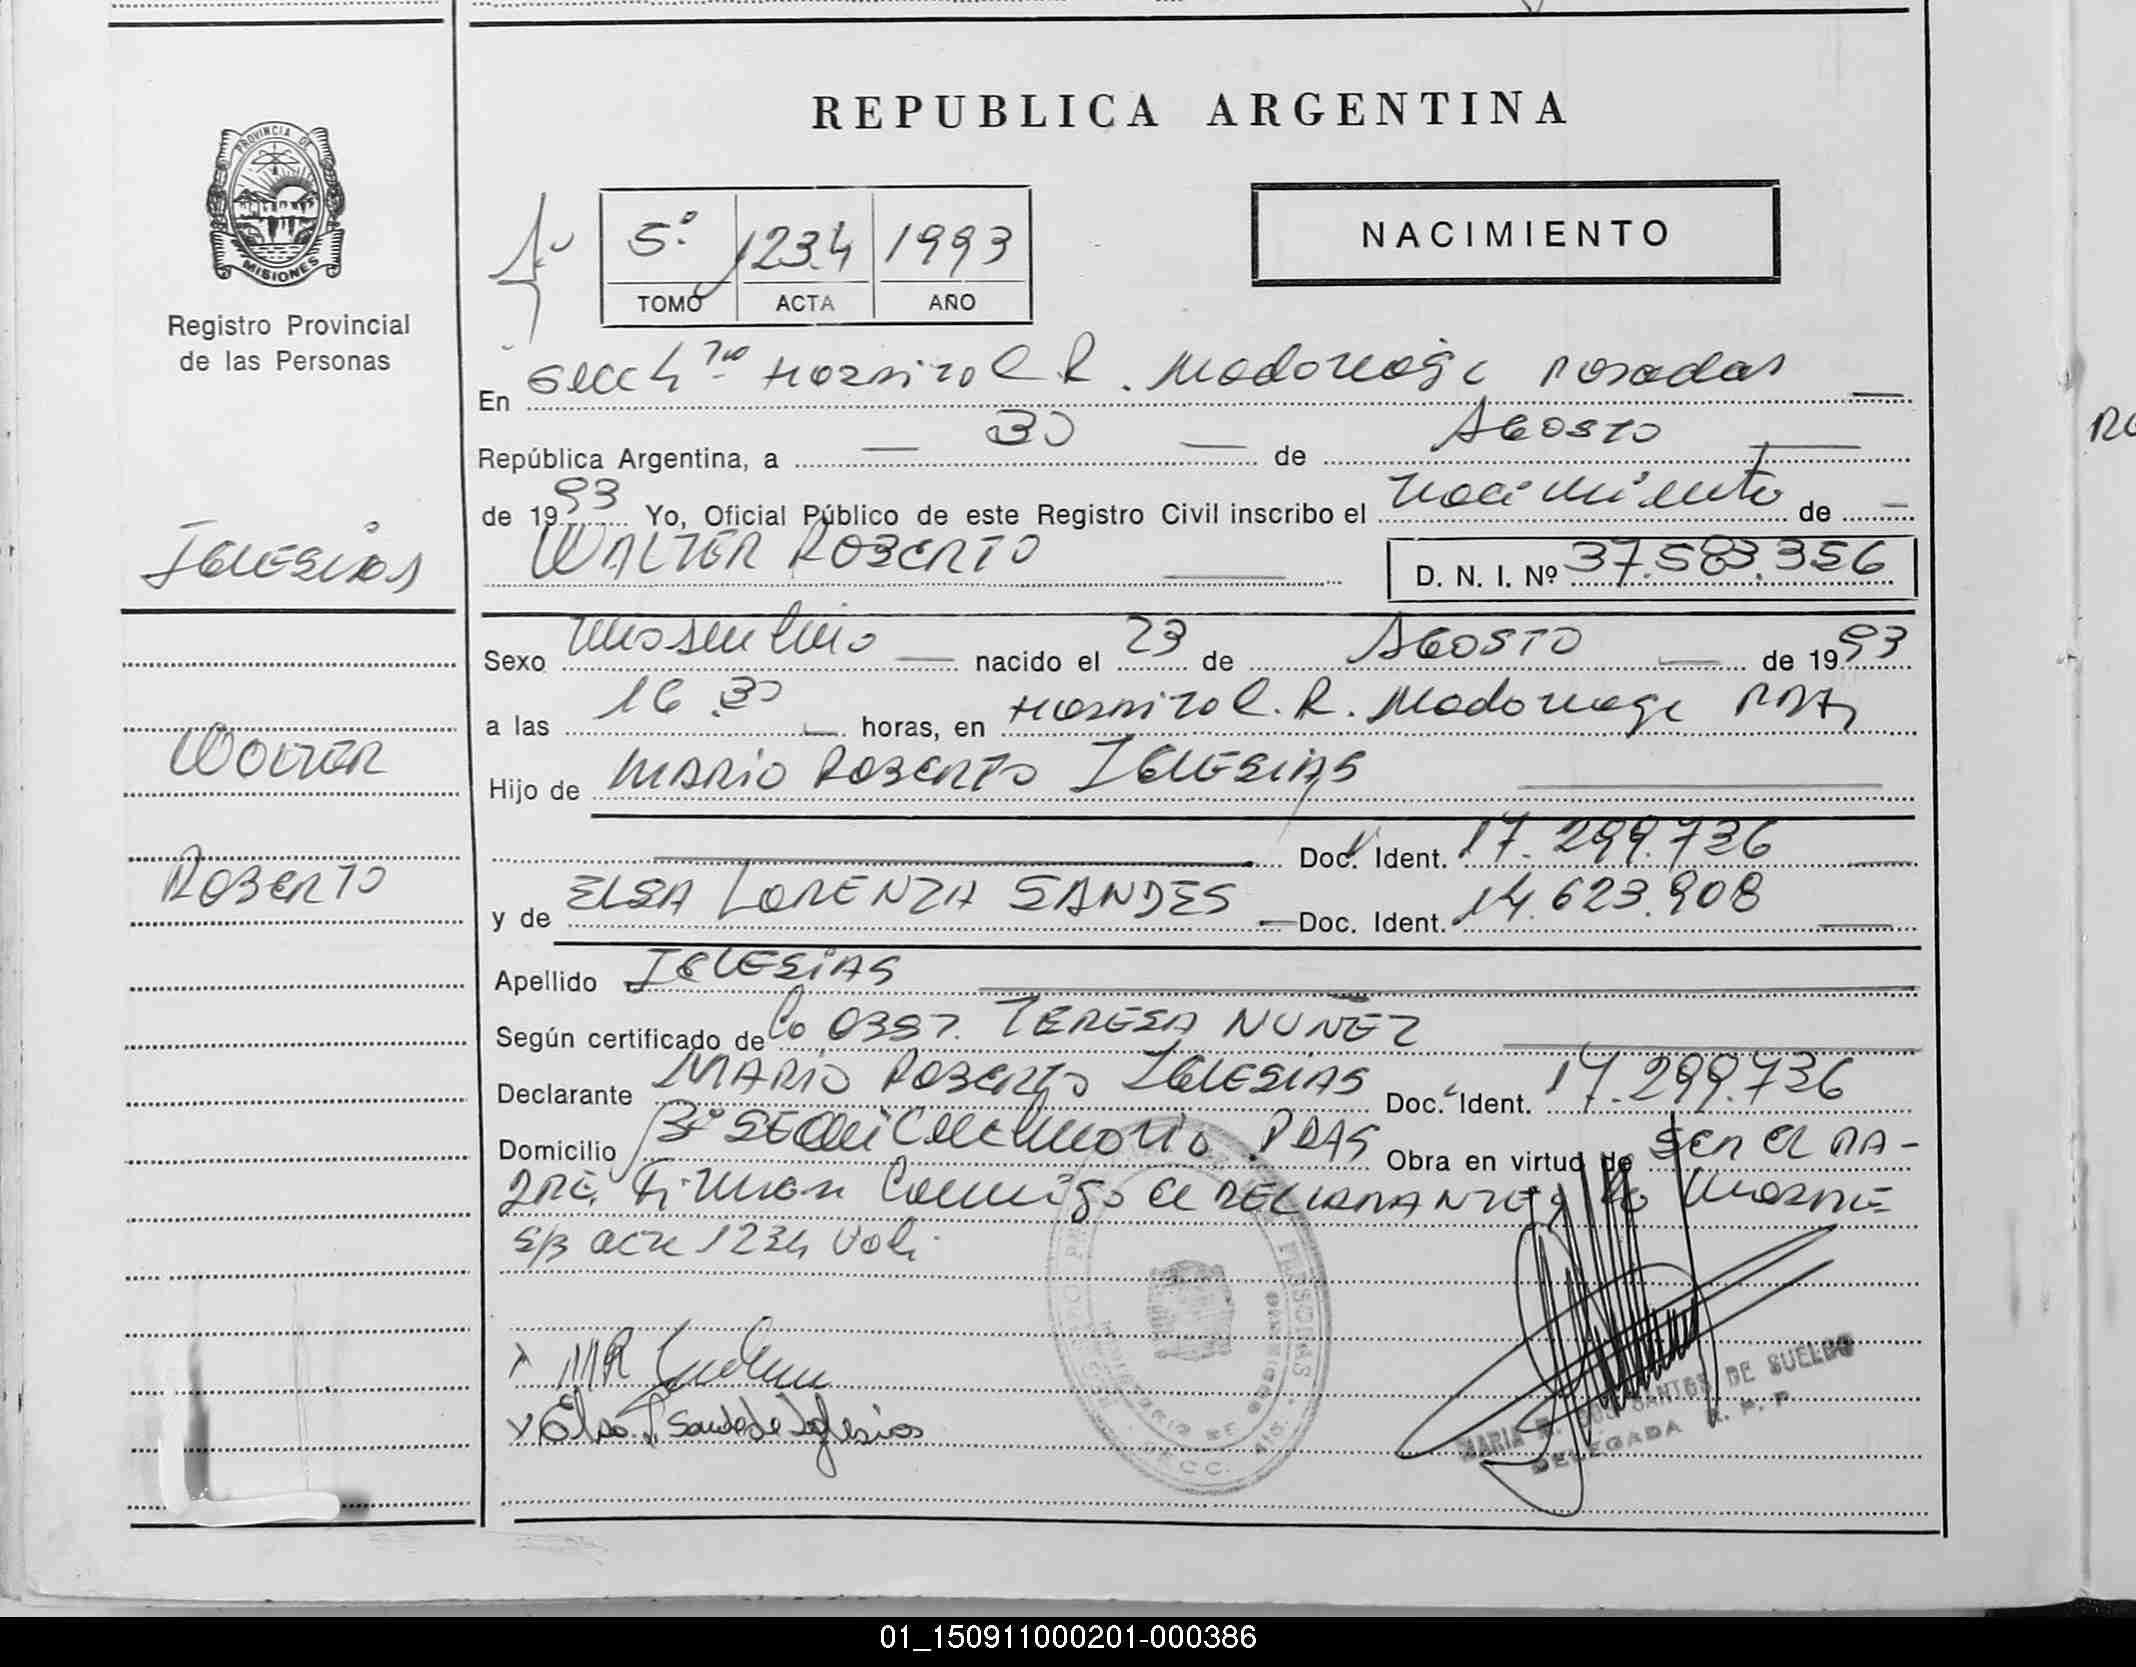 REPUBLICA ARGENTINA
PROVINCIA DE
MISIONES
Registro Provincial
de las Personas
5º 1234 1993
TOMO ACTA AÑO
NACIMIENTO
En Secc 4ta Hospital R. Madariaga Posadas
República Argentina, a 30 de Agosto
de 1993 Yo, Oficial Público de este Registro Civil inscribo el nacimiento de
WALTER ROBERTO D. N. I. Nº 37.583.356
Iglesias
Sexo masculino nacido el 23 de Agosto de 1993
a las 16.30 horas, en Hospital R. Madariaga PDAS
Walter
Hijo de MARIO ROBERTO IGLESIAS
Doc. Ident. 17.299.736
Roberto
y de ELSA LORENZA SANDES Doc. Ident. 14.623.908
Apellido IGLESIAS
Según certificado de la Obst. TERESA NUÑEZ
Declarante MARIO ROBERTO IGLESIAS Doc. Ident. 17.299.736
Domicilio Bº PDAS Obra en virtud de ser el PA-
DRE. Firman conmigo el DECLARANTE y la MADRE
S/B acta 1234 Vale
MR
Elsa L Sandes de Iglesias
MARIA R. DOS SANTOS DE SUELDO
DELEGADA R. P. P
01_150911000201-000386